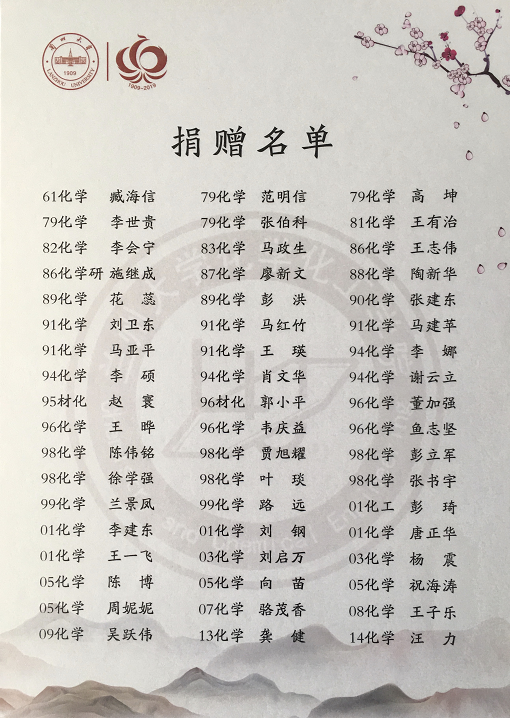 蘭州大學
1909
LANZHOU UNIVERSITY
1909-2019
捐赠名单
61化学 臧海信 79化学 范明信 79化学 高坤
79化学 李世贵 79化学 张伯科 81化学 王有治
82化学 李会宁 83化学 马政生 86化学 王志伟
86化学研 施继成 87化学 廖新文 88化学 陶新华
89化学 花蕊 89化学 彭洪 90化学 张建东
91化学 刘卫东 91化学 马红竹 91化学 马建苹
91化学 马亚平 91化学 王瑛 94化学 李娜
94化学 李硕 94化学 肖文华 94化学 谢云立
95材化 赵寰 96材化 郭小平 96化学 董加强
96化学 王晔 96化学 韦庆益 96化学 鱼志坚
98化学 陈伟铭 98化学 贾旭耀 98化学 彭立军
98化学 徐学强 98化学 叶琰 98化学 张书宇
99化学 兰景凤 99化学 路远 01化工 彭琦
01化学 李建东 01化学 刘钢 01化学 唐正华
01化学 王一飞 03化学 刘启万 03化学 杨震
05化学 陈博 05化学 向苗 05化学 祝海涛
05化学 周妮妮 07化学 骆茂香 08化学 王子乐
09化学 吴跃伟 13化学 龚健 14化学 汪力